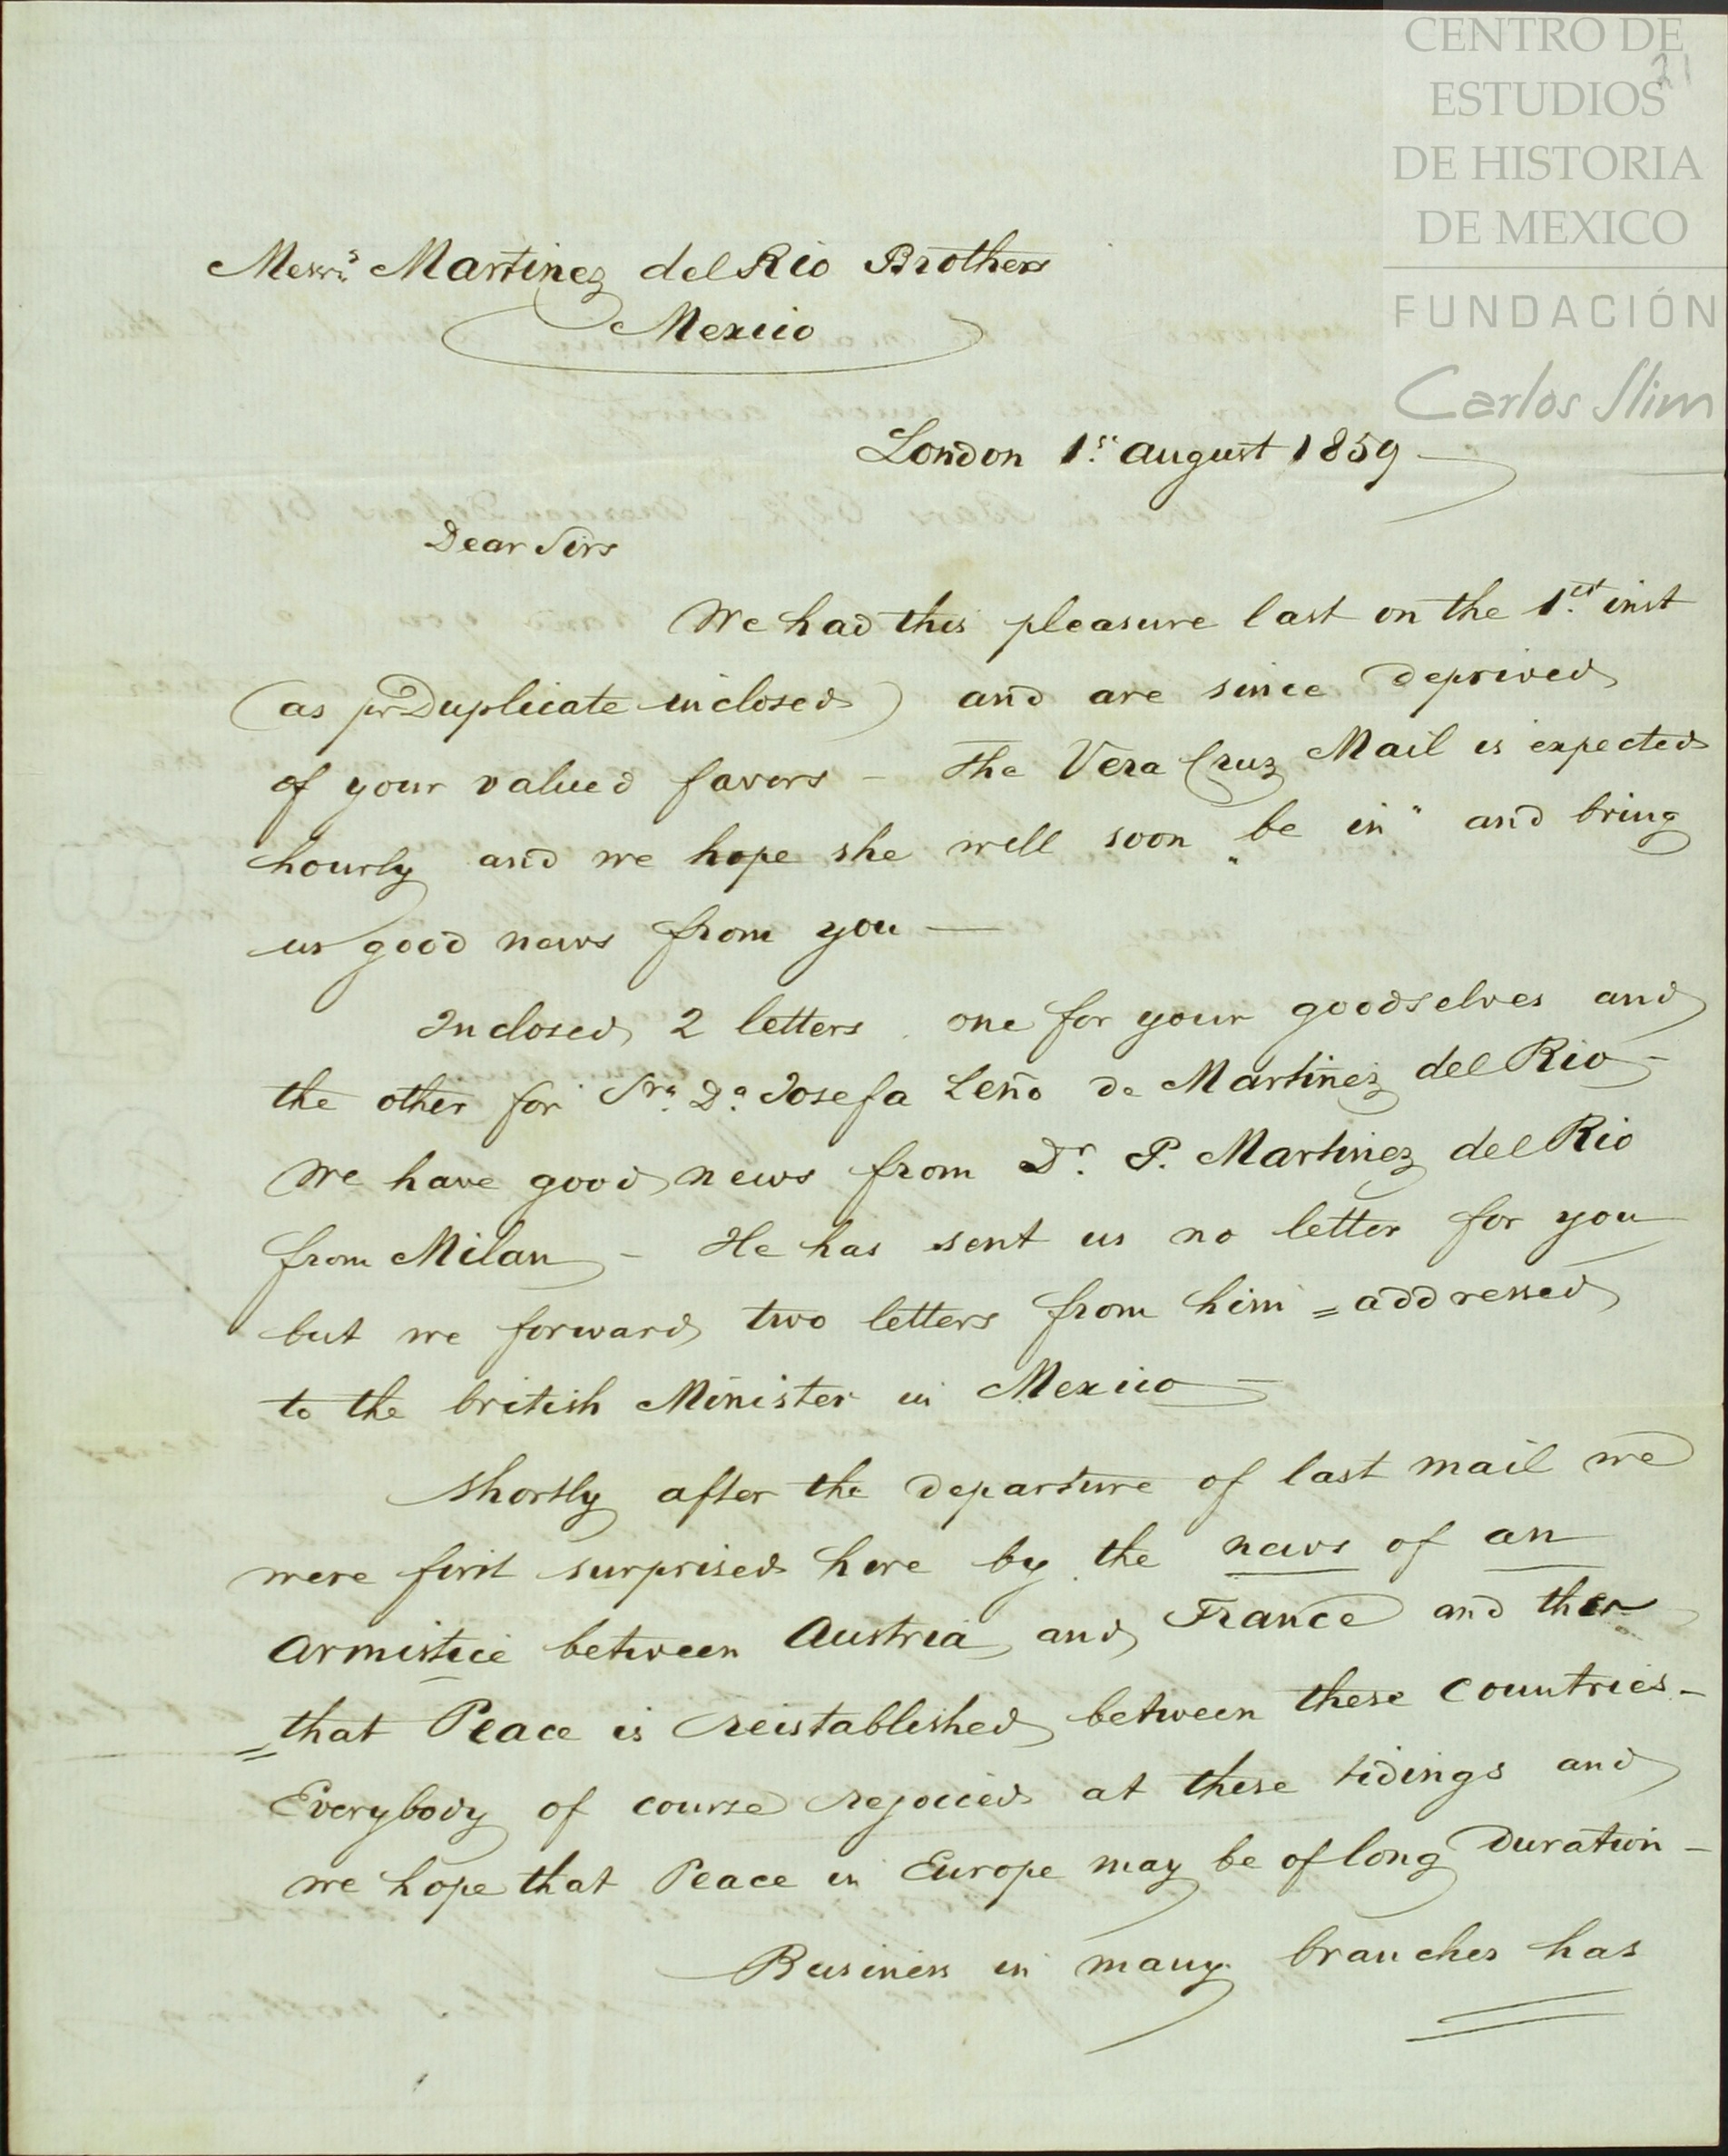 CENTRO DE
ESTUDIOS
DE HISTORIA
DE MEXICO
FUNDACIÓN
Carlos Slim
21
Messrs Martinez del Rio Brothers
Mexico
London 1st August 1859
Dear Sirs
We had this pleasure last on the 1st inst
(as pr Duplicate inclosed) and are since deprived
of your valued favors – The Vera Cruz Mail is expected
hourly and we hope she will soon "be in" and bring
us good news from you —
Inclosed 2 letters one for your goodselves and
the other for Sra Da Josefa Leño de Martinez del Rio –
We have good news from Dr. P. Martinez del Rio
from Milan – He has sent us no letter for you
but we forward two letters from him = addressed
to the british Minister in Mexico –
Shortly after the departure of last mail we
were first surprised here by the news of an
Armistice between Austria and France and then
= that Peace is reistablished between these Countries –
Everybody of course rejoiced at these tidings and
we hope that Peace in Europe may be of long Duration –
Business in many branches has